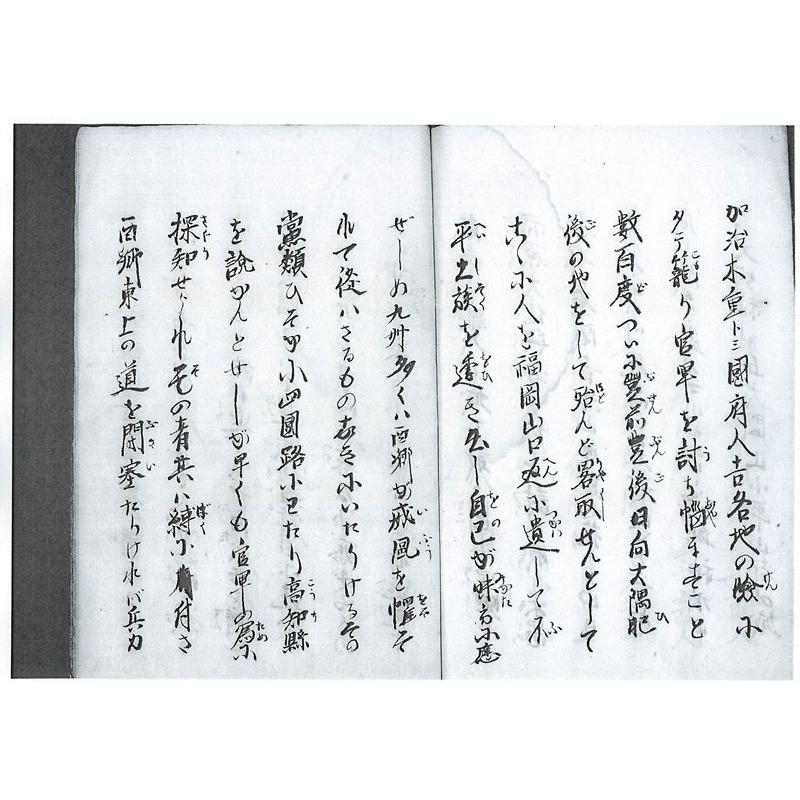 加治木重トミ國府人吉各地の險に
タテ籠り官軍を討ち惱ますこと
數百度つひに豐前豐後日向大隅肥
後の地をして殆んど畧取せんとして
こゝに人を福岡山口邊に遣して不
平士族を透き出し自己が味方に應
ぜしめ九州多くハ西郷が威風を懼そ
れて從ハざるもの無きにいたりけるその
黨類ひそかに四國路にわたり高知縣
を説かんとせしが早くも官軍の爲に
探知せられ其の者共ハ縛に付き
西郷東上の道を閉塞たりけれバ兵力